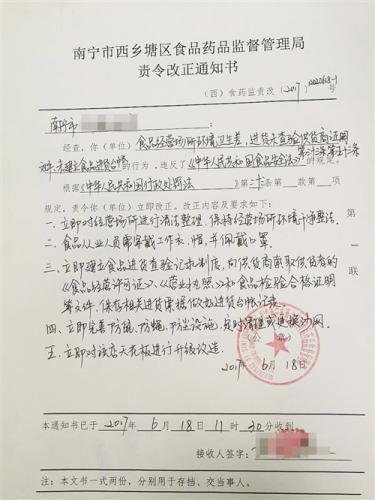 南宁市西乡塘区食品药品监督管理局
责令改正通知书
（西）食药监责改〔2017〕
南宁市
经查，你（单位）食品经营场所环境卫生差，进货未查验供货商证明
文件，未建立食品进货台帐的行为，违反了《中华人民共和国食品安全法》第三十三条第五十三条的规定。
根据《中华人民共和国行政处罚法》第二十三条第 款第 项
规定，责令你（单位）立即改正。改正内容及要求如下：
一、立即对经营场所进行清洁整理，保持经营场所环境干净整洁。
二、食品从业人员需穿戴工作衣、帽，并佩戴口罩。
三、立即建立食品进货查验记录制度，向供货商索取供货商的
《食品经营许可证》、《营业执照》和食品检验合格证明
等文件，保存相关进货票据做好进货台帐记录。
四、立即完善防鼠、防蝇、防尘设施，及时清理或更换沙网。
五、立即对该店天花板进行升级改造。
（公 章）
2017年 6月 18日
第一联
本通知书已于 2017年 6月 18日 11时 30分收到。
接收人签字：
注：本文书一式两份，分别用于存档、交当事人。